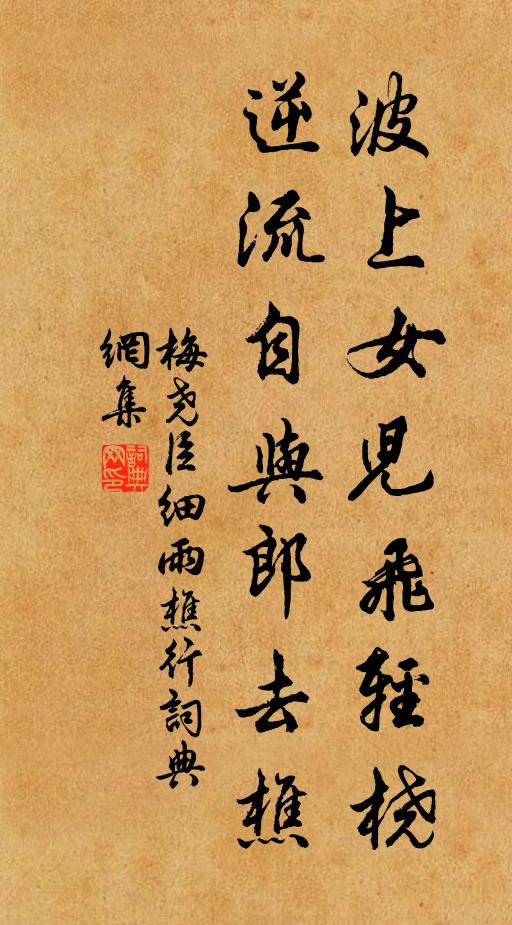 波上女兒飛輕桡
逆流自與郎去樵
梅尧臣细雨樵行詞典
網集
詞典
网印